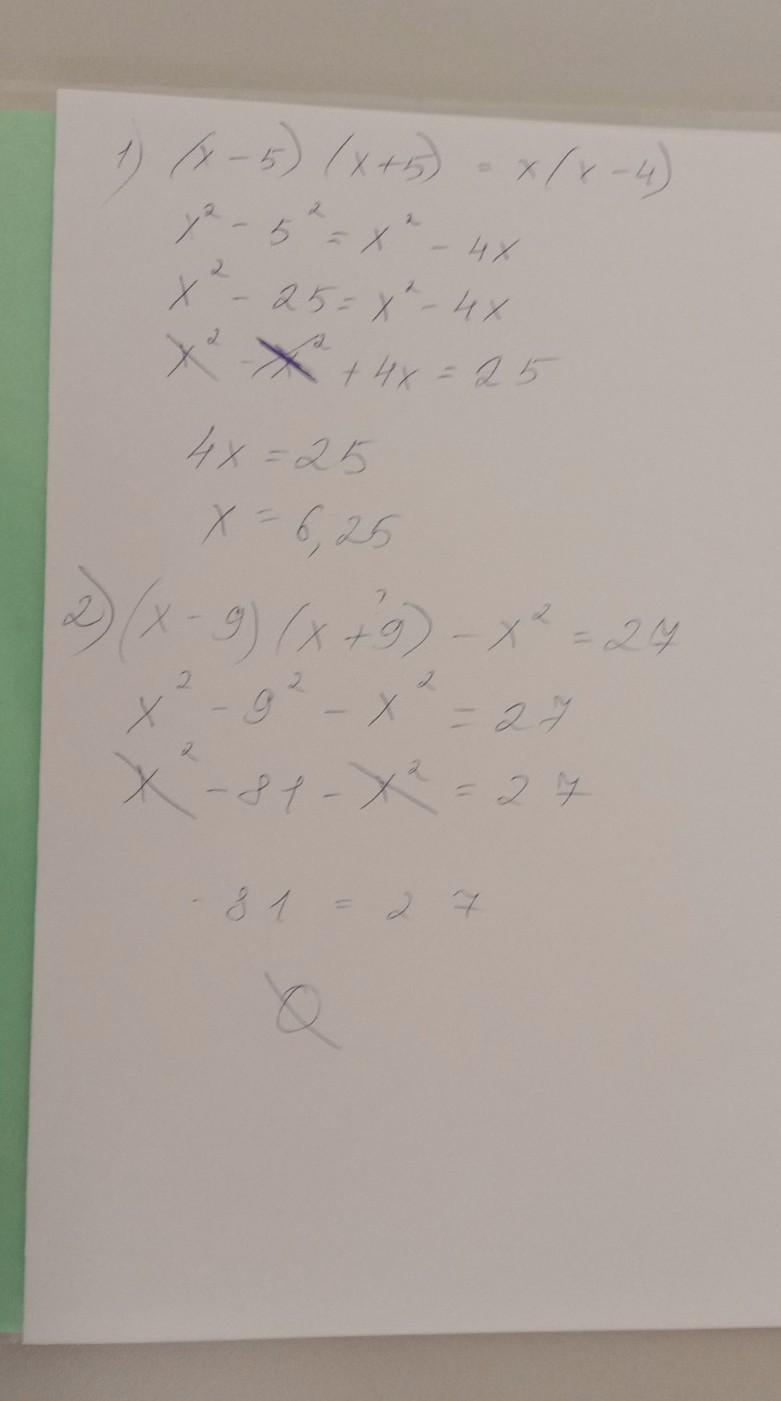 1) (x-5) (x+5) = x(x-4)
x² - 5² = x² - 4x
x² - 25 = x² - 4x
x² - x² + 4x = 25
4x = 25
x = 6,25
2) (x-9) (x+9) - x² = 27
x² - 9² - x² = 27
x² - 81 - x² = 27
-81 = 27
Ø